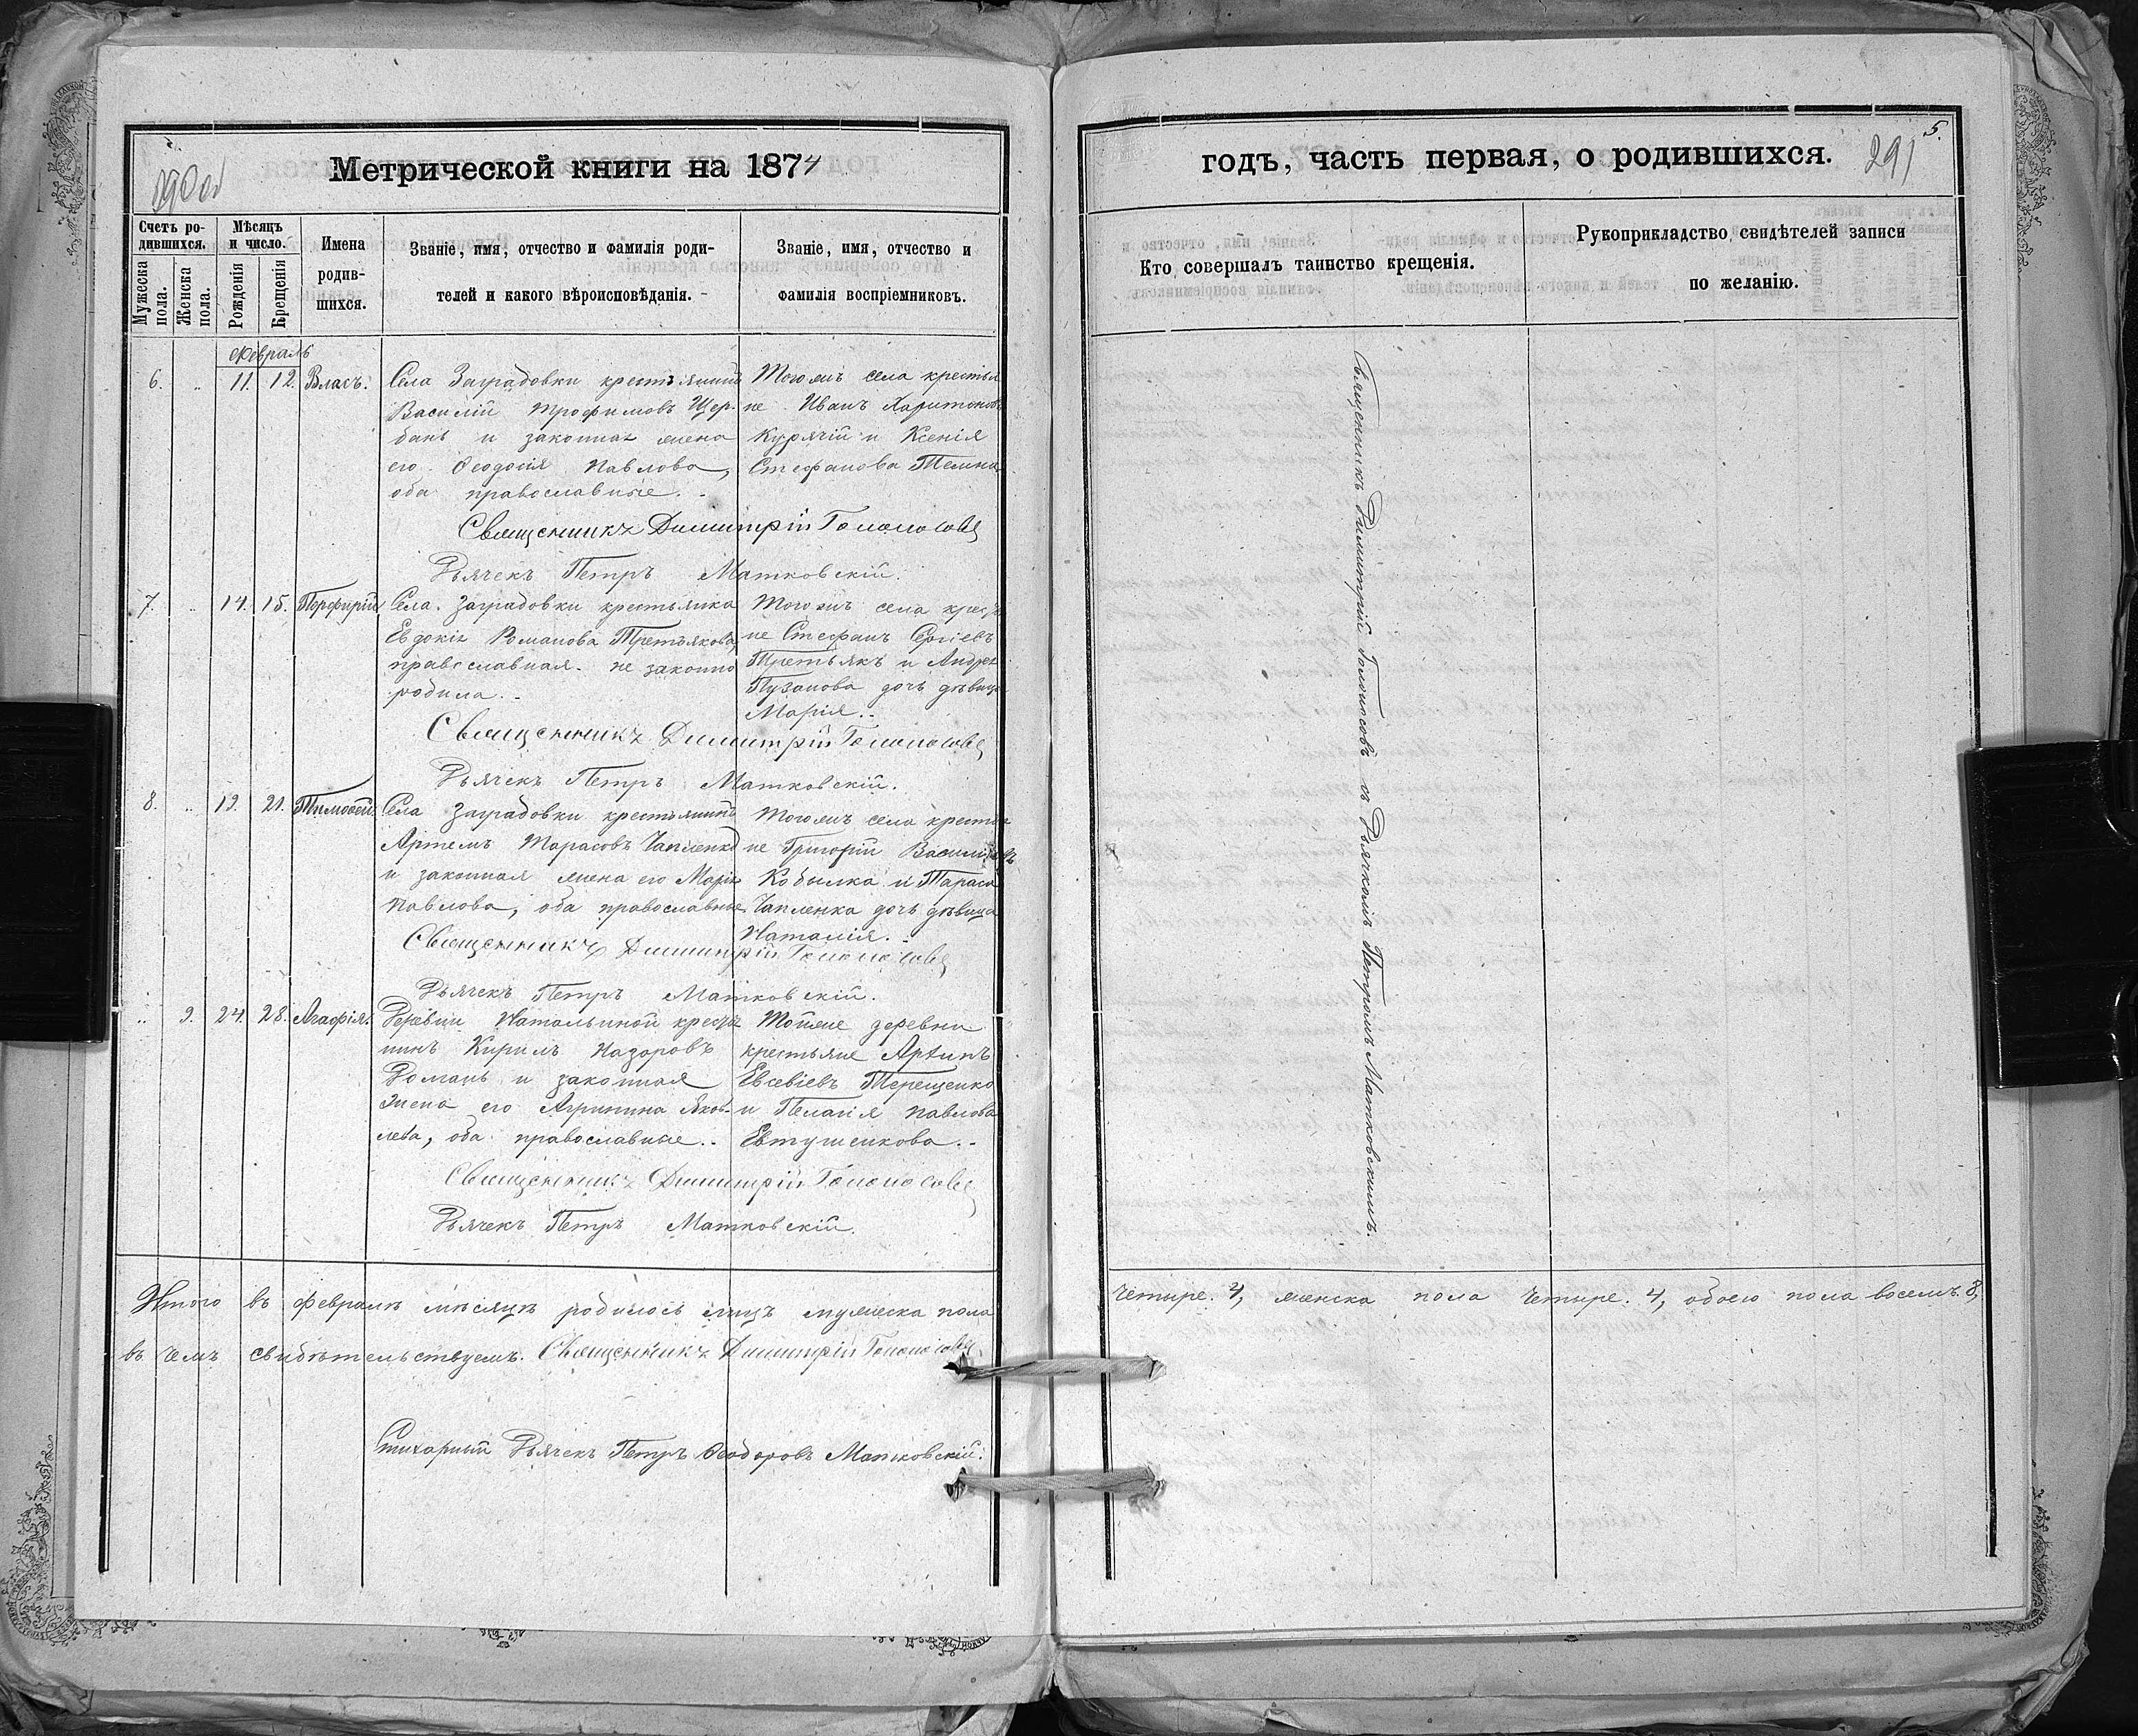 290 об
Метрической книги на 1874
Счетъ ро-
дившихся.
Мѣсяцъ
и число.
Мужеска
пола.
Женска
пола.
Рожденія
Крещенія
Имена
родив-
шихся.
Званіе, имя, отчество и фамилія роди-
телей и какого вѣроисповѣданія.
Званіе, имя, отчество и
фамилія воспріемниковъ.
Февраль
6. „ 11. 12. Власъ.
Села Заградовки крестьянинъ
Василій Трофимовъ Щер-
бань и законная жена
его Феодосія Павлова,
оба православные.
Тогожъ села крестья
не Иванъ Харитоновъ
Курячій и Ксенія
Стефанова
Священникъ Димитрій Голоносовъ
Дьячекъ Петръ Матковскій.
7. „ 14. 15. Порфирій
Села Заградовки крестьянка
Евдокія Романова Третьякова,
православная. не законно
родила.
Тогожъ села крестья
не Стефанъ Сергіевъ
Третьякъ и Андрея
Пузанова дочь дѣвица
Марія.
Священникъ Димитрій Голоносовъ
Дьячекъ Петръ Матковскій.
8. „ 19. 21. Тимофей.
Села Заградовки крестьянинъ
Артемъ Тарасовъ Чапленко
и законная жена его Марія
Павлова, оба православные.
Тогожъ села крестья
не Григорій Васильевъ
Кобылка и Тараса
Чапленка дочь дѣвица
Наталія.
Священникъ Димитрій Голоносовъ
Дьячекъ Петръ Матковскій.
„ 9. 24. 28. Агафія.
Деревни Натальиной крестья
нинъ Кирилъ Назаровъ
Романъ и законная
жена его Агрипина Яков-
лева, оба православные.
Тойже деревни
крестьяне
Евсевіевъ Терещенко
и Пелагія Павлова
Евтушенкова.
Священникъ Димитрій Голоносовъ
Дьячекъ Петръ Матковскій.
Итого въ февралѣ мѣсяцѣ родилось лицъ мужеска пола
въ чемъ свидѣтельствуемъ. Священникъ Димитрій Голоносовъ
Стихарный Дьячекъ Петръ Феодоровъ Матковскій.
5.
291
годъ, часть первая, о родившихся.
Кто совершалъ таинство крещенія.
Рукоприкладство свидѣтелей записи
по желанію.
Священникъ Димитрій Голоносовъ съ Дьячкомъ Петромъ Матковскимъ.
четыре. 4, женска пола четыре. 4, обоего пола восемь. 8,